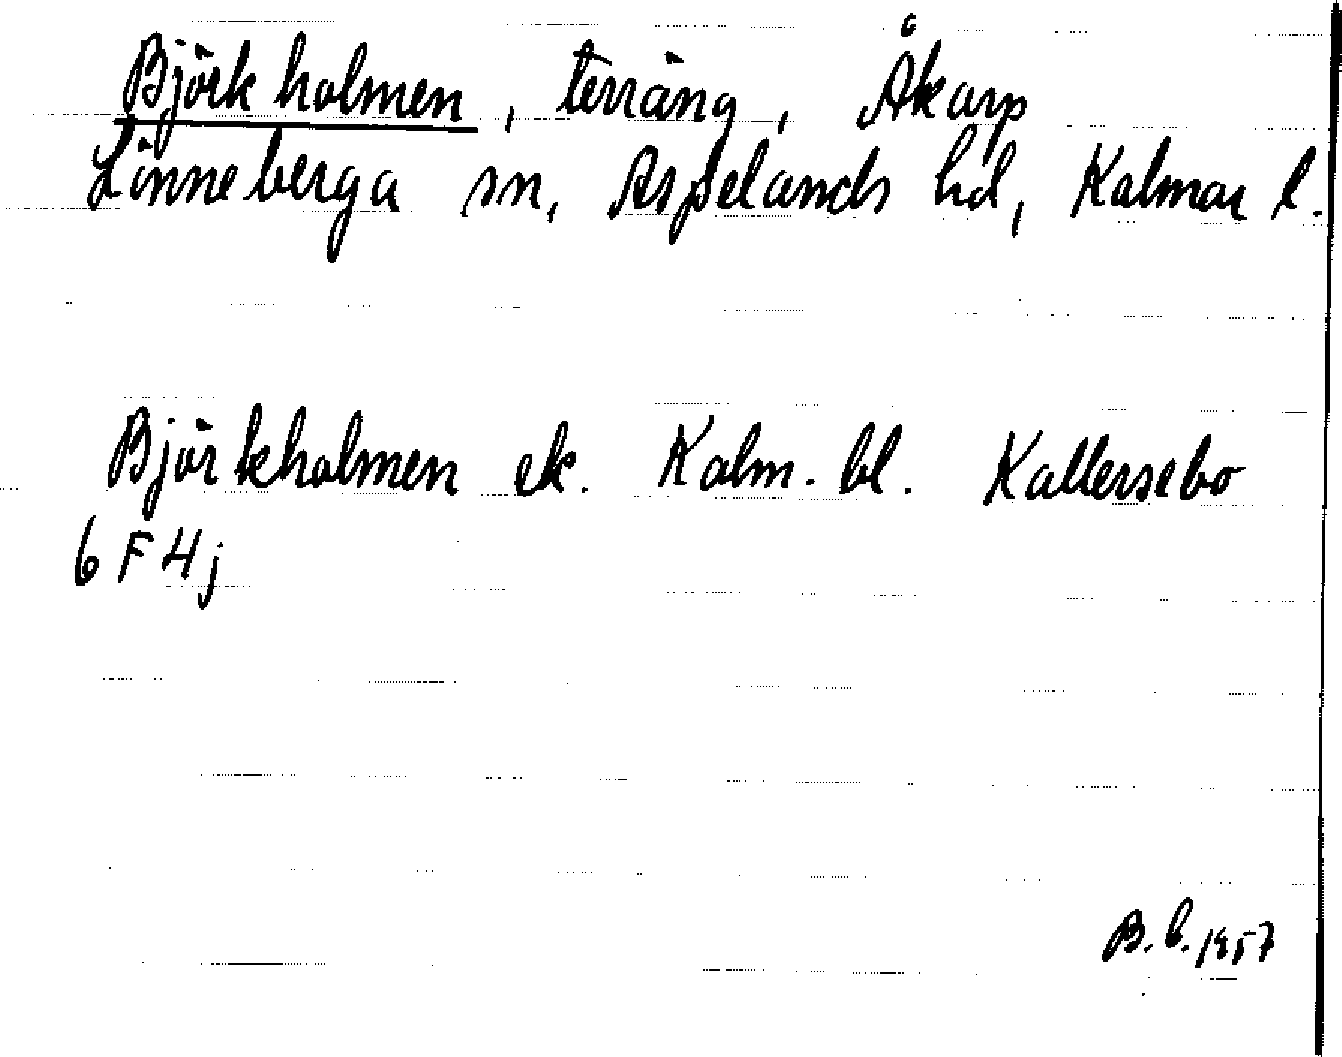 Björkholmen, terräng, Åkarp
Lönneberga sn, Aspelands hd, Kalmar l.
Björkholmen ek. Kalm. bl. Kallersebo
6 F 4j
B. b. 1957